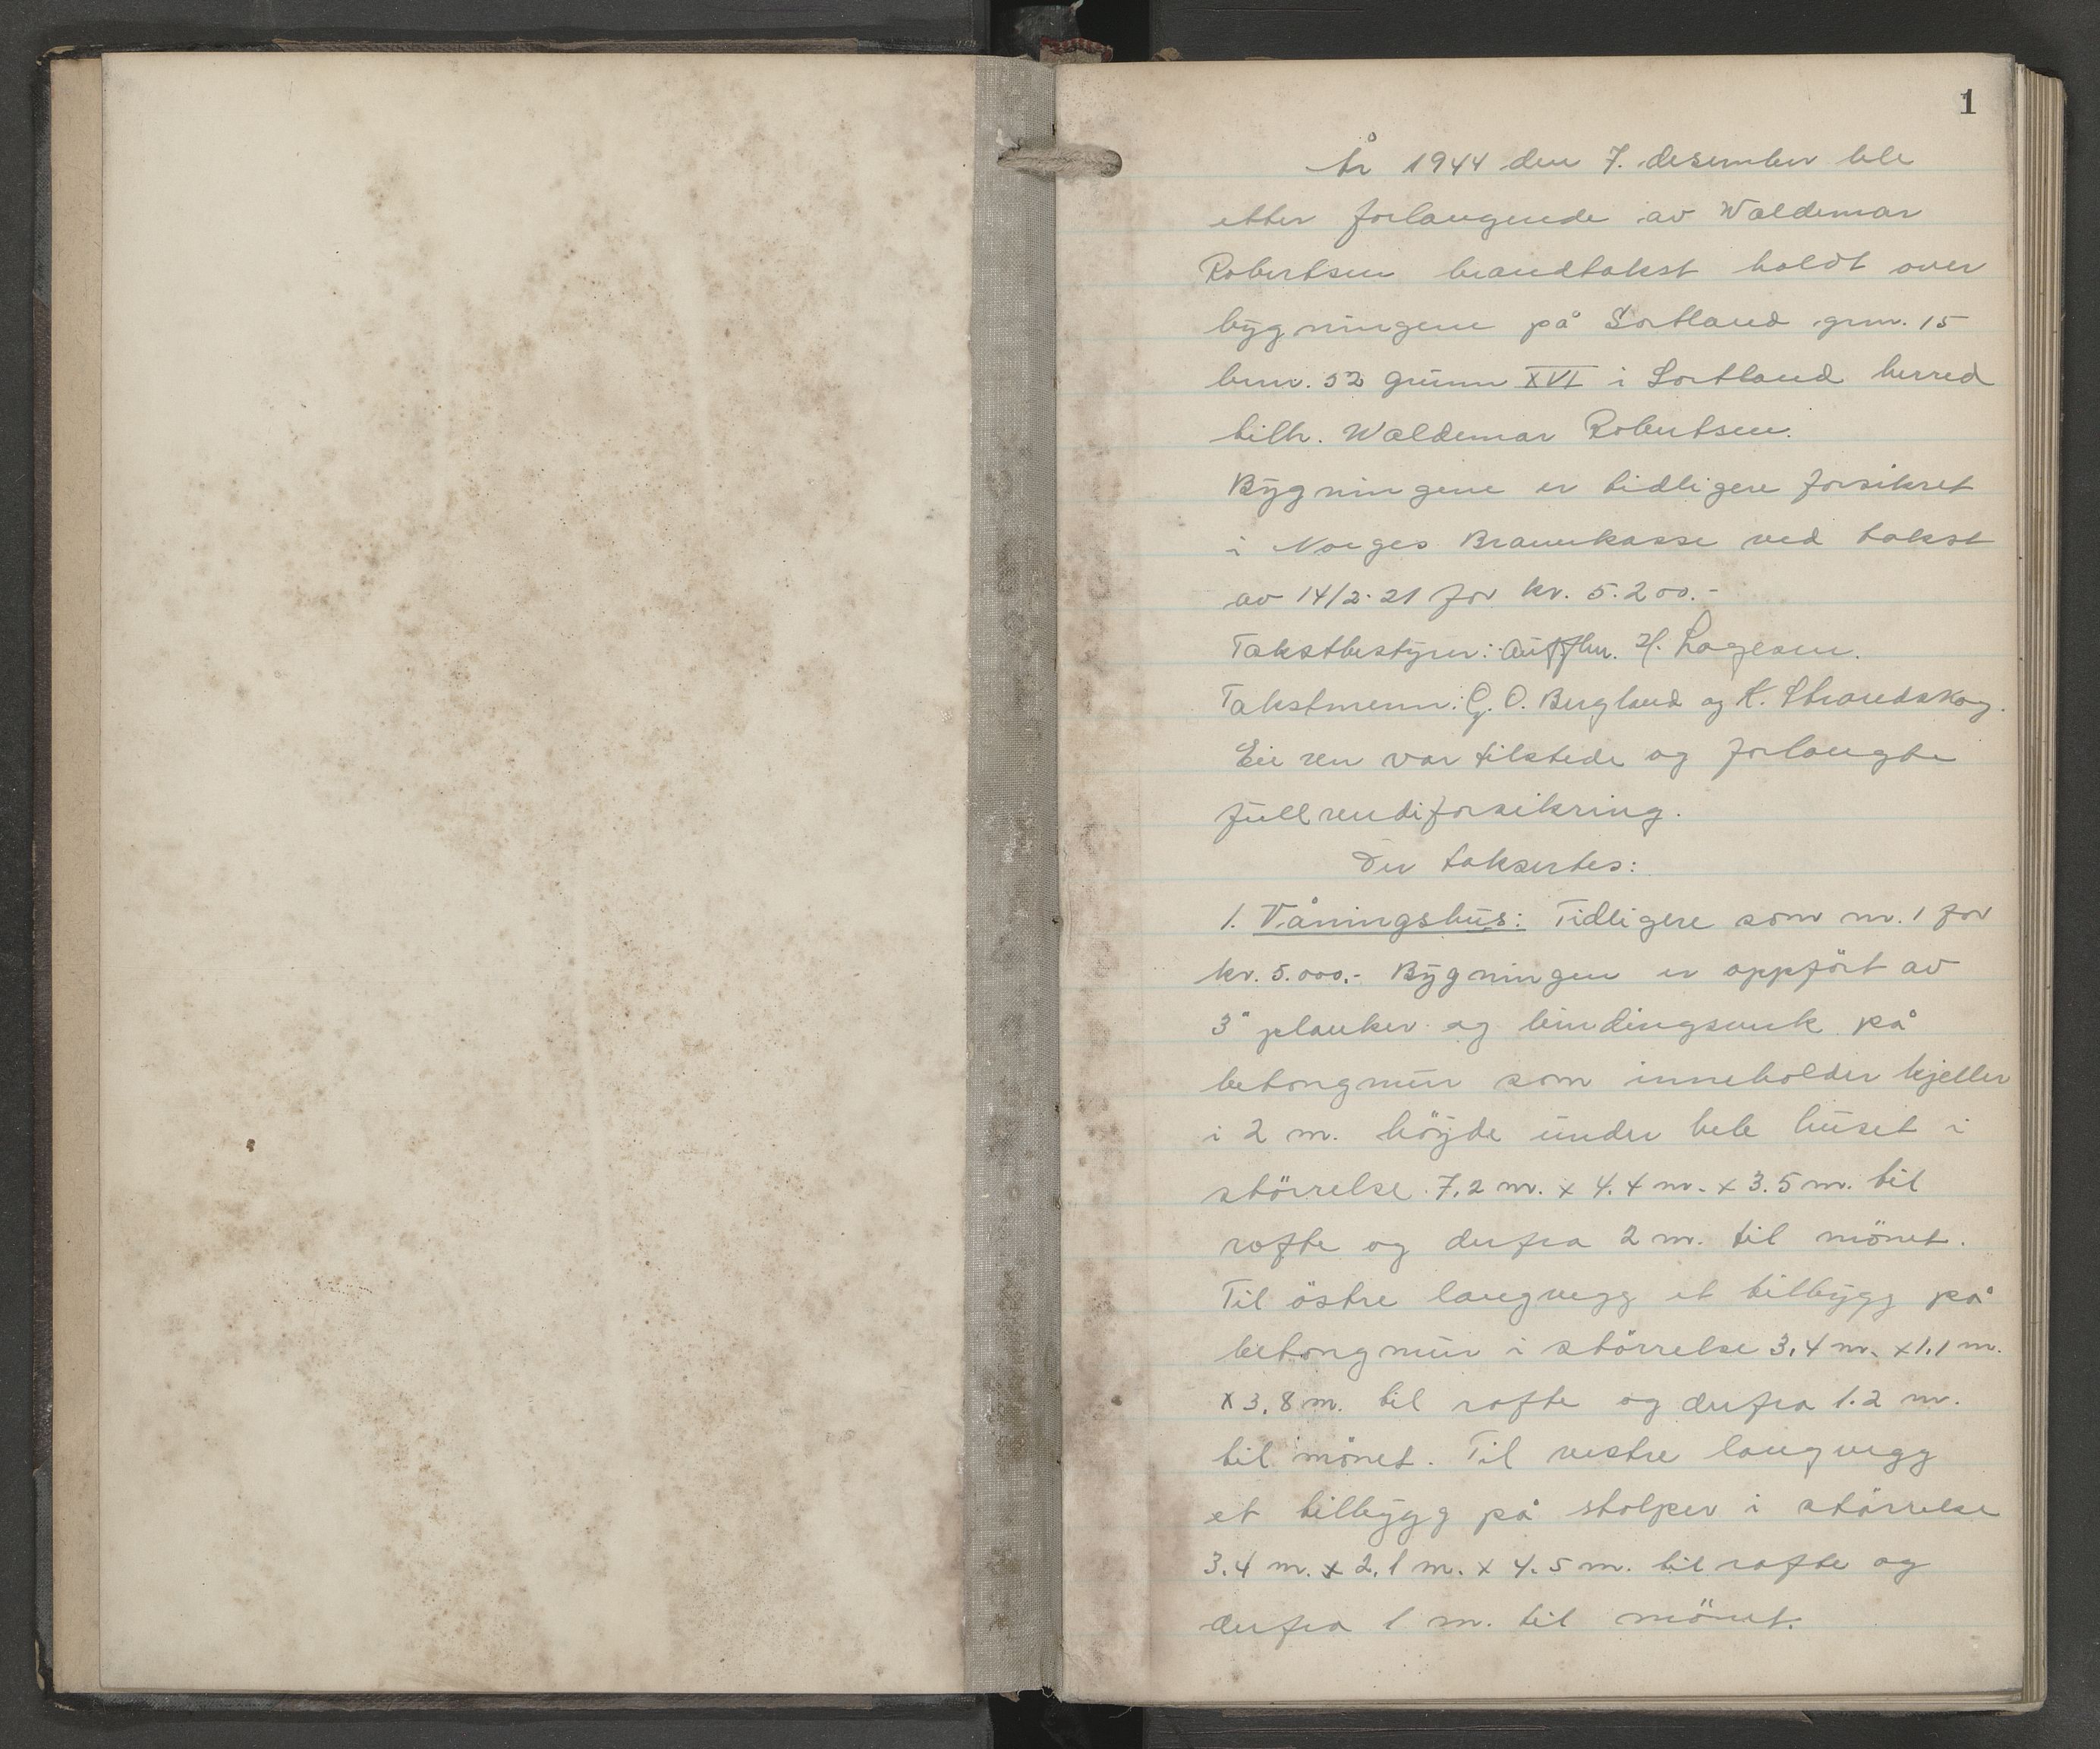 1
År 1944 den 7. desember ble
etter forlangende av Waldemar
Robertsen brandtakst holdt over
bygningene på Sortland gnr. 15
bnr. 52 grunn XVI i Sortland herred
tilh. Waldemar Robertsen.
Bygningene er tidligere forsikret
i Norges Brannkasse ved takst
av 14/2-21 for kr. 5.200.-
Takstbestyrer: H. Lagesen.
Takstmenn: G. O. Bergland og K. Strandskog.
Eieren var tilstede og forlangte
fullverdiforsikring.
Der taksertes:
1. Våningshus: Tidligere som nr. 1 for
kr. 5.000.- Bygningen er oppfört av
3" planker og bindingsverk på
betongmur som inneholder kjeller
i 2 m. höyde under hele huset i
störrelse 7,2 m. x 4.4 m. x 3.5 m. til
rofte og derfra 2 m. til mönet.
Til östre langvegg et tilbygg på
betongmur i störrelse 3,4 m. x 1,1 m.
x 3,8 m. til rofte og derfra 1.2 m.
til mönet. Til vestre langvegg
et tilbygg på stolper i störrelse
3.4 m. x 2,1 m. x 4.5 m. til rofte og
derfra 1 m. til mönet.